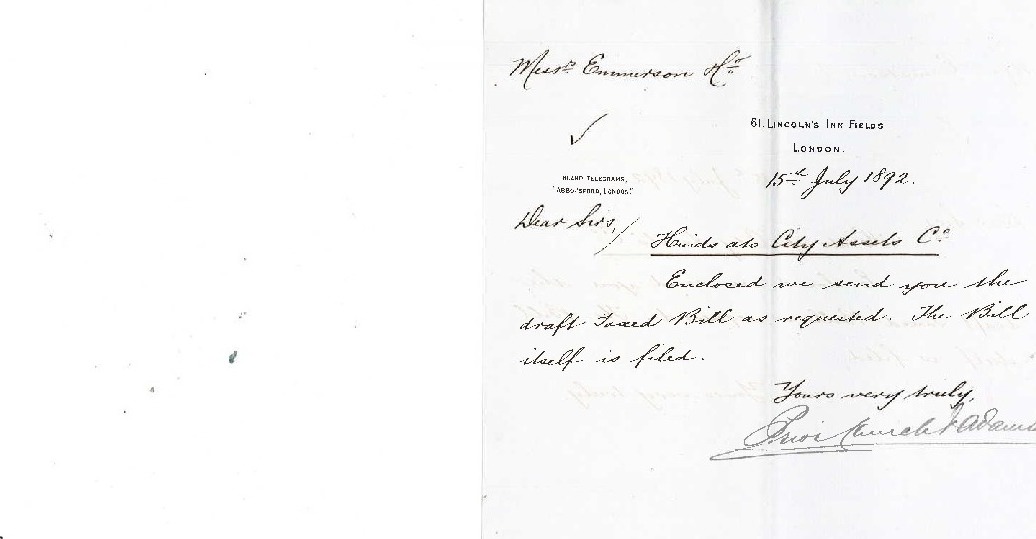 Messrs Emmerson & Co
61, LINCOLN'S INN FIELDS
LONDON.
15th July 1892.
INLAND TELEGRAMS,
"ABBOTSFORD, LONDON."
Dear Sirs,
Hinds ats City Assets Co
Enclosed we send you the
draft Taxed Bill as requested. The Bill
itself is filed.
Yours very truly,
Prior Church & Adams